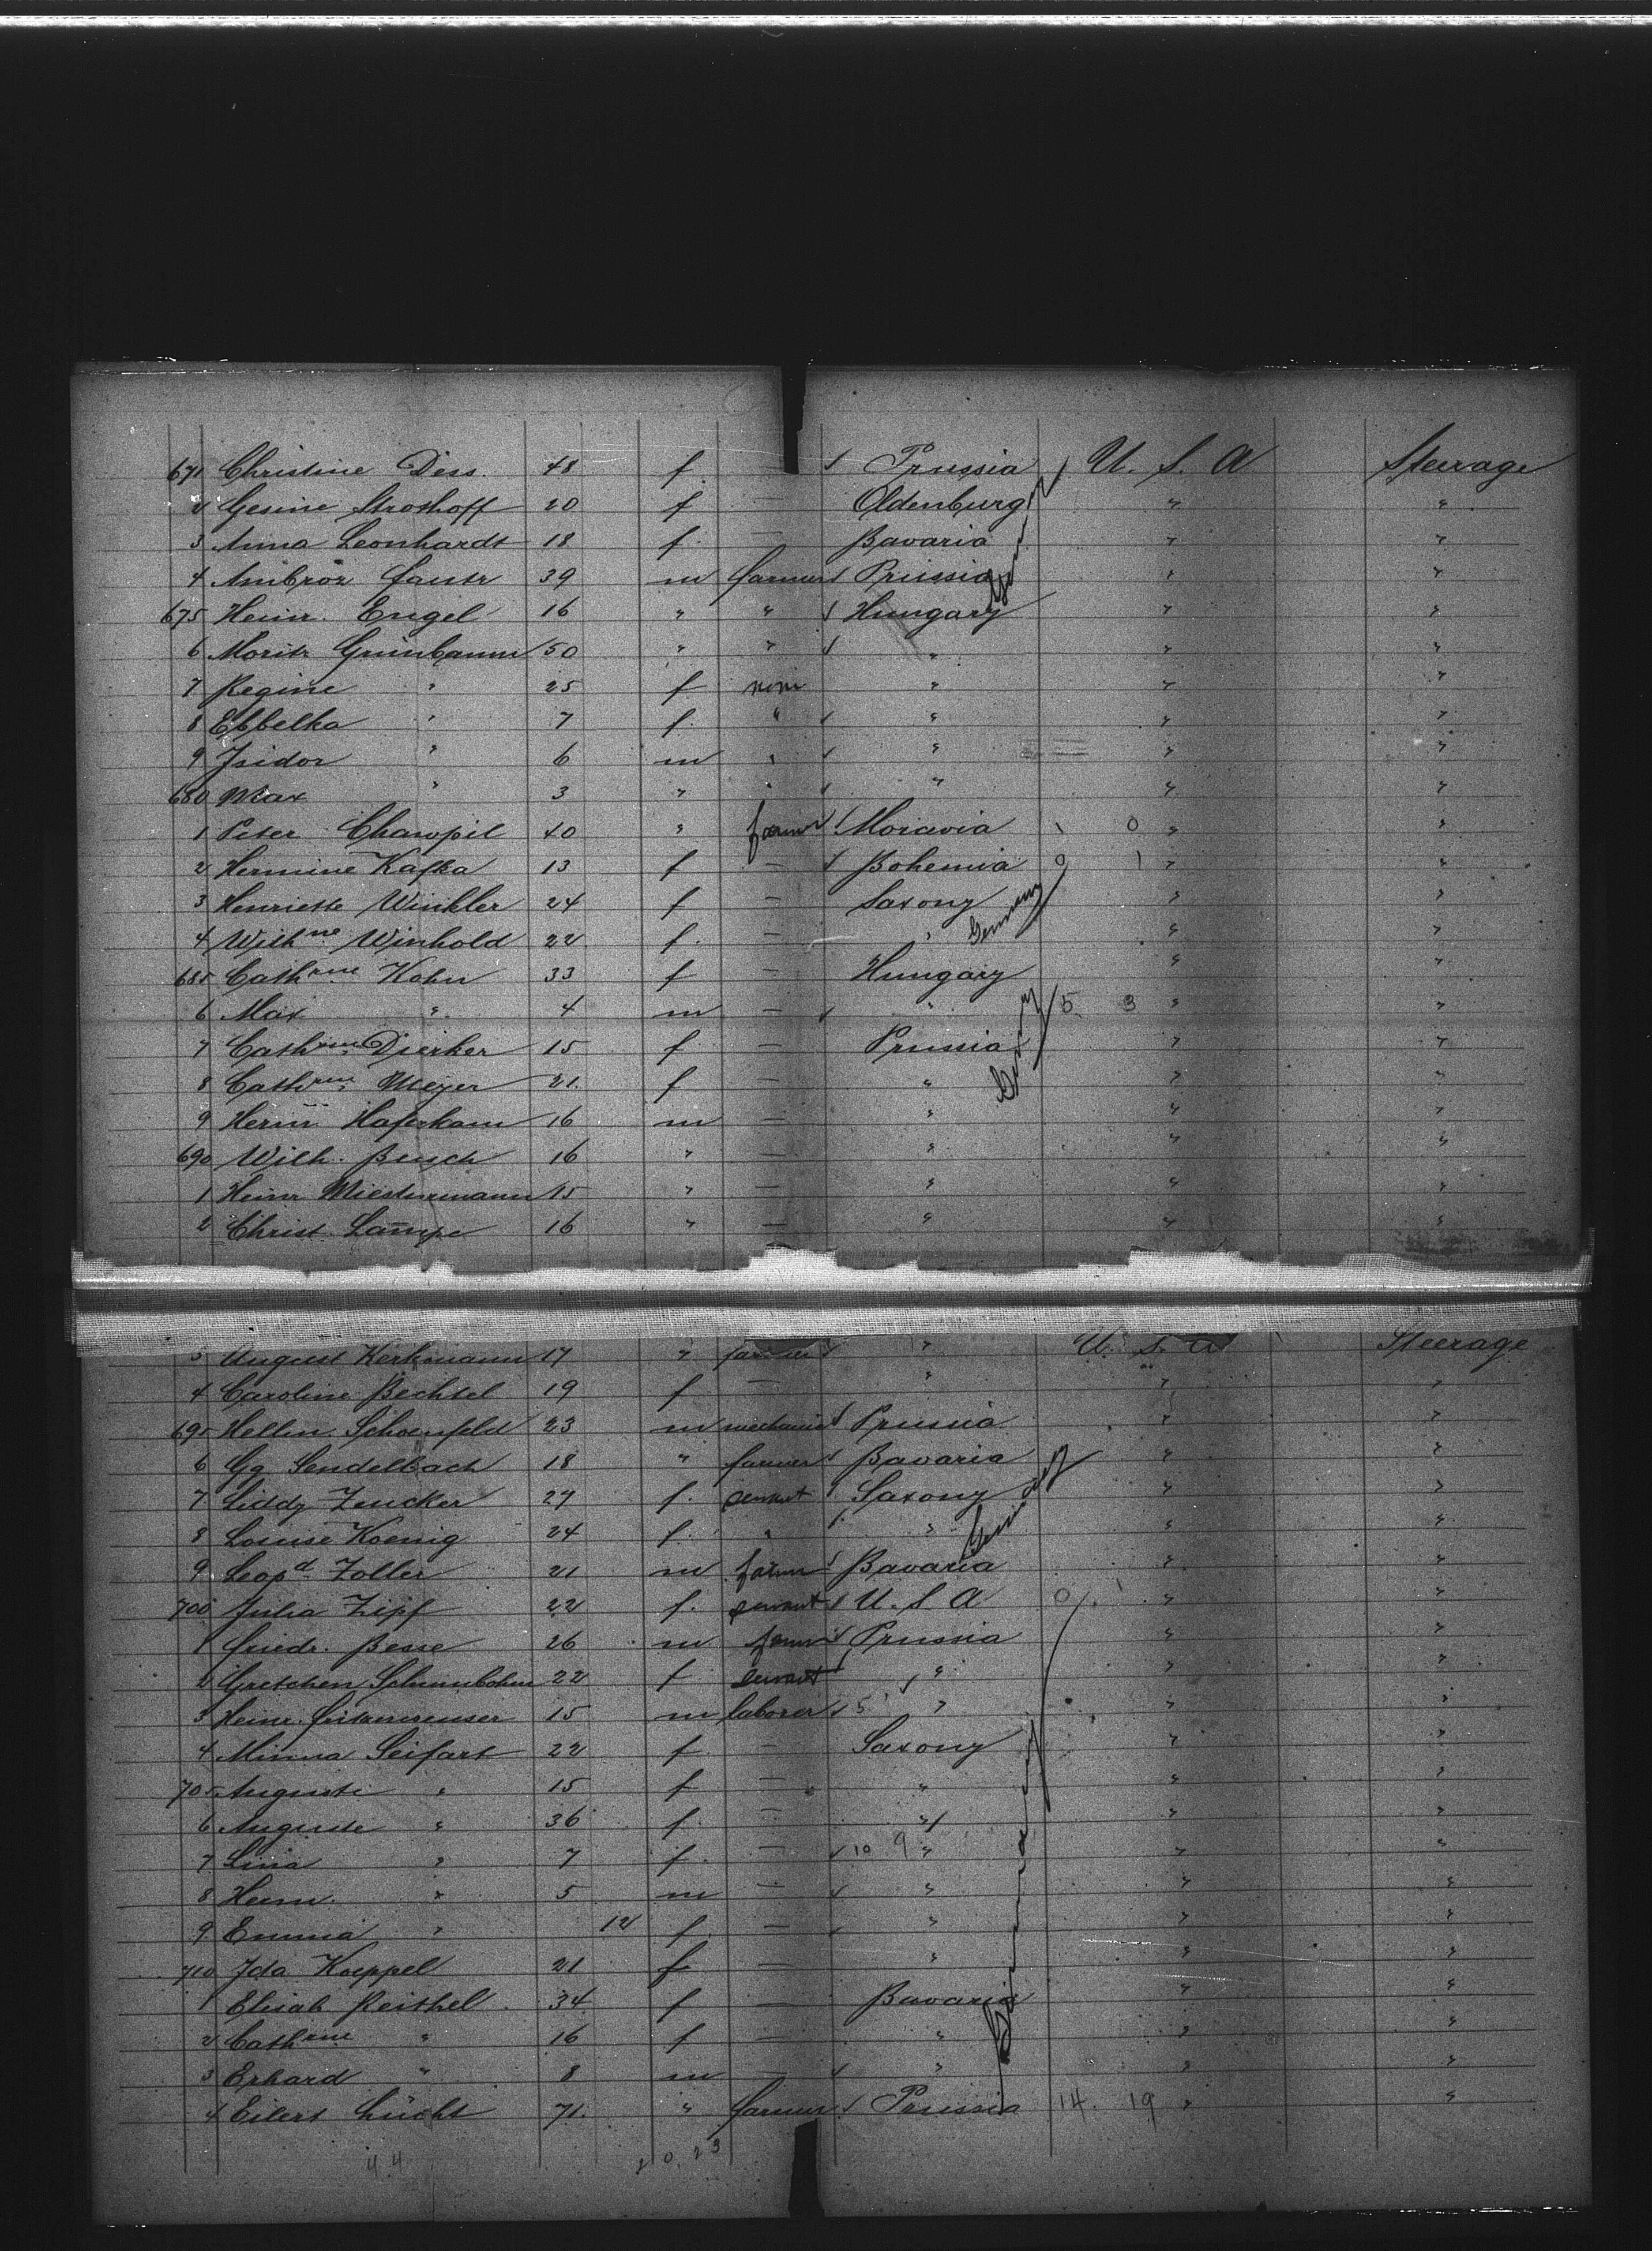 671 Christine Diss. 48 f. — ✓ Prussia U. S. A Steerage
2 Gesine Strothoff 20 f — Oldenburg " "
3 Anna Leonhardt 18 f. — Bavaria " "
4 Ambroz 39 m farmer ✓ Prussia " "
675 Heinr. Engel 16 " " ✓ Hungary " "
6 Moritz Grünbaum 50 " " ✓ " " "
7 Regine " 25 f none " " "
8 " 7 f. " ✓ " " "
9 Isidor " 6 m " ✓ " " "
680 Max " 3 " " ✓ " " "
1 Peter Charopil 40 " farmer ✓ Moravia 1 0 " "
2 Hermine Kafka 13 f — ✓ Bohemia 0 1 " "
3 Henriette Winkler 24 f — Saxony " "
4 Wilh.ne Winhold 22 f. — " Germany " "
685 Cathrine Kohn 33 f — Hungary " "
6 Max " 4 m — ✓ " 5 3 " "
7 Cathrine Dierker 15 f — Prussia " "
8 Cathrine Meyer 21. f — " Germany " "
9 Herm. Haferkam 16 m — " " "
690 Wilh. Busch 16 " — " " "
1 Heinr Miestermann 15 " — " " "
2 Christ. Lampe 16 " — " " "
3 August Kerkmann 17 " farmer ✓ " U. S. A Steerage
4 Caroline Bechtel 19 f — " " "
695 Hellm. Schoenfeld 23 m mechanic ✓ Prussia " "
6 Gg Sendelbach 18 " farmer ✓ Bavaria " "
7 Liddy Zencker 27 f. servant ✓ Saxony " "
8 Louise Koenig 24 f. " " Germany " "
9 Leopd. Zoller 21 m farmer ✓ Bavaria " "
700 Julia Zipf 22 f. servant ✓ U. S. A 0 1 " "
1 Friedr. Besse 26 m farmer ✓ Prussia " "
2 Gretchen Schumbohm 22 f servant ✓ " " "
3 Heinr. 15 m laborer ✓ 5 " " "
4 Minna Seifart 22 f — Saxony " "
705 Auguste " 15 f — " " "
6 Auguste " 36 f. — " " "
7 Lina " 7 f. — ✓ 10 9 " " "
8 Herm. " 5 m — ✓ " " "
9 Emma " 12 f — ✓ " " "
710 Ida Koeppel 21 f — " " "
1 Elisab Reithel 34 f — Bavaria " "
2 Cathrine " 16 f — " Germany " "
3 Erhard " 8 m — ✓ " " "
4 Eilert Lücht 71. " farmer ✓ Prussia 14. 19 " "
44 20. 23